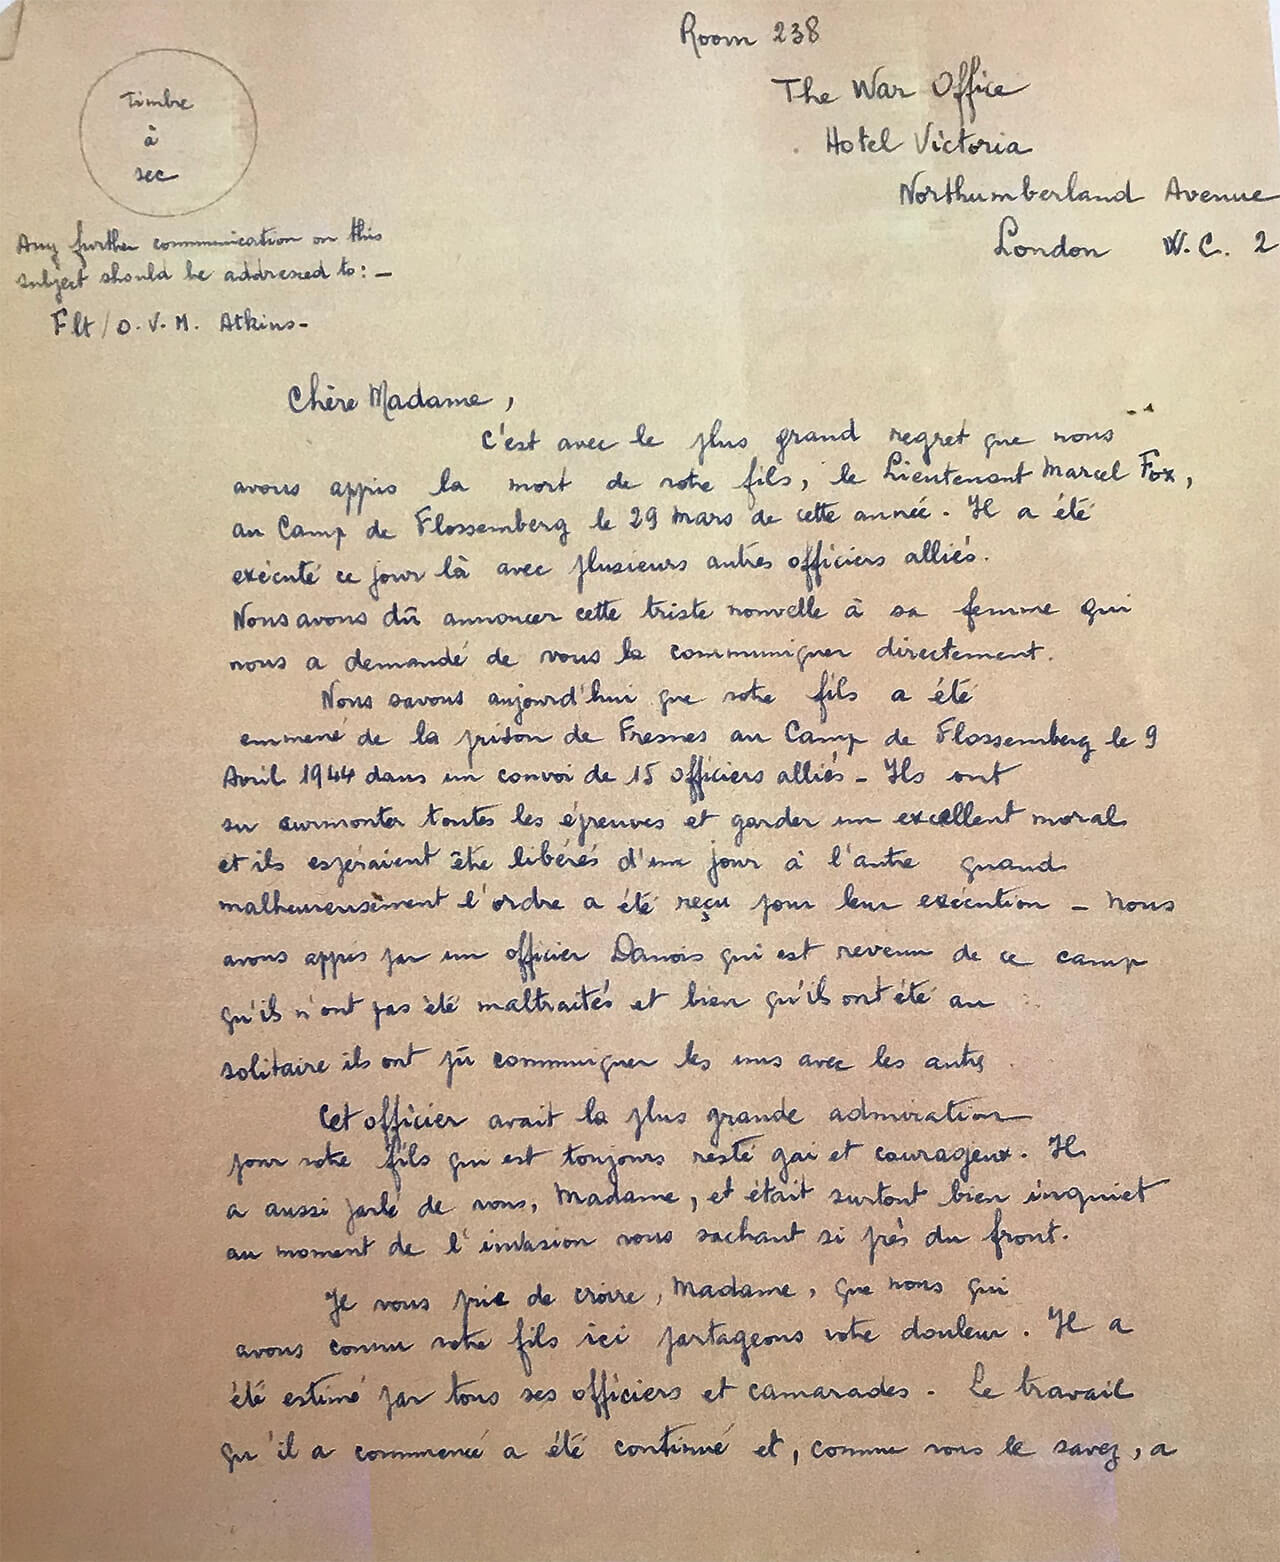 Room 238
The War Office
Hotel Victoria
Northumberland Avenue
London W.C. 2
Timbre
à
sec
Any further communication on this
subject should be addressed to: –
Flt/O. V. M. Atkins –
Chère Madame,
C'est avec le plus grand regret que nous
avons appris la mort de votre fils, le Lieutenant Marcel Fox,
au Camp de Flossemberg le 29 Mars de cette année. Il a été
exécuté ce jour là avec plusieurs autres officiers alliés.
Nous avons dû annoncer cette triste nouvelle à sa femme qui
nous a demandé de vous la communiquer directement.
Nous savons aujourd'hui que votre fils a été
emmené de la prison de Fresnes au Camp de Flossemberg le 9
Avril 1944 dans un convoi de 15 officiers alliés – Ils ont
su surmonter toutes les épreuves et garder un excellent moral
et ils espéraient être libérés d'un jour à l'autre quand
malheureusement l'ordre a été reçu pour leur exécution – Nous
avons appris par un officier Danois qui est revenu de ce camp
qu'ils n'ont pas été maltraités et bien qu'ils ont été au
solitaire ils ont pû communiquer les uns avec les autres
Cet officier avait la plus grande admiration
pour votre fils qui est toujours resté gai et courageux. Il
a aussi parlé de vous, Madame, et était surtout bien inquiet
au moment de l'invasion vous sachant si près du front.
Je vous prie de croire, Madame, que nous qui
avons connu votre fils ici partageons votre douleur. Il a
été estimé par tous ses officiers et camarades. Le travail
qu'il a commencé a été continué et, comme vous le savez, a